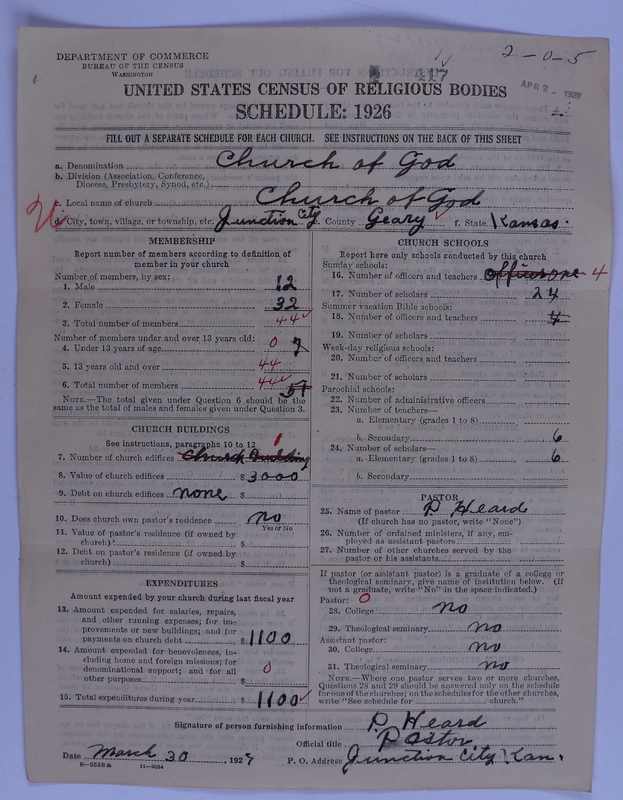 DEPARTMENT OF COMMERCE
BUREAU OF THE CENSUS
WASHINGTON
417
2-0-5
APR 2 - 1927
UNITED STATES CENSUS OF RELIGIOUS BODIES
SCHEDULE: 1926
FILL OUT A SEPARATE SCHEDULE FOR EACH CHURCH. SEE INSTRUCTIONS ON THE BACK OF THIS SHEET
a. Denomination Church of God
b. Division (Association, Conference,
Diocese, Presbytery, Synod, etc.)
c. Local name of church Church of God
d. City, town, village, or township, etc. Junction City County Geary f. State Kansas.
MEMBERSHIP
Report number of members according to definition of
member in your church
Number of members, by sex:
1. Male 12
2. Female 32
3. Total number of members 44
Number of members under and over 13 years old:
4. Under 13 years of age 0 7
5. 13 years old and over 44
6. Total number of members 44 51
NOTE.—The total given under Question 6 should be the
same as the total of males and females given under Question 3.
CHURCH BUILDINGS
See instructions, paragraphs 10 to 12
7. Number of church edifices Church Building 1
8. Value of church edifices $ 3000
9. Debt on church edifices none $
10. Does church own pastor's residence no
Yes or No
11. Value of pastor's residence (if owned by
church) $
12. Debt on pastor's residence (if owned by
church) $
EXPENDITURES
Amount expended by your church during last fiscal year
13. Amount expended for salaries, repairs,
and other running expenses; for im-
provements or new buildings; and for
payments on church debt $ 1100
14. Amount expended for benevolences, in-
cluding home and foreign missions; for
denominational support; and for all
other purposes $ 0
15. Total expenditures during year $ 1100
CHURCH SCHOOLS
Report here only schools conducted by this church
Sunday schools:
16. Number of officers and teachers officers one 4
17. Number of scholars 24
Summer vacation Bible schools:
18. Number of officers and teachers 4
19. Number of scholars
Week-day religious schools:
20. Number of officers and teachers
21. Number of scholars
Parochial schools:
22. Number of administrative officers
23. Number of teachers—
a. Elementary (grades 1 to 8)
b. Secondary 6
24. Number of scholars—
a. Elementary (grades 1 to 8) 6
b. Secondary
PASTOR
25. Name of pastor P Heard
(If church has no pastor, write "None")
26. Number of ordained ministers, if any, em-
ployed as assistant pastors
27. Number of other churches served by the
pastor or his assistants
If pastor (or assistant pastor) is a graduate of a college or
theological seminary, give name of institution below. (If
not a graduate, write "No" in the space indicated.)
Pastor: 0
28. College no
29. Theological seminary no
Assistant pastor:
30. College no
31. Theological seminary no
NOTE.—Where one pastor serves two or more churches,
Questions 28 and 29 should be answered only on the schedule
for one of the churches; on the schedules for the other churches,
write "See schedule for church."
Signature of person furnishing information P. Heard
Official title Pastor
Date March 30, 1927 P. O. Address Junction City Kan.
8-5618a 11-9594